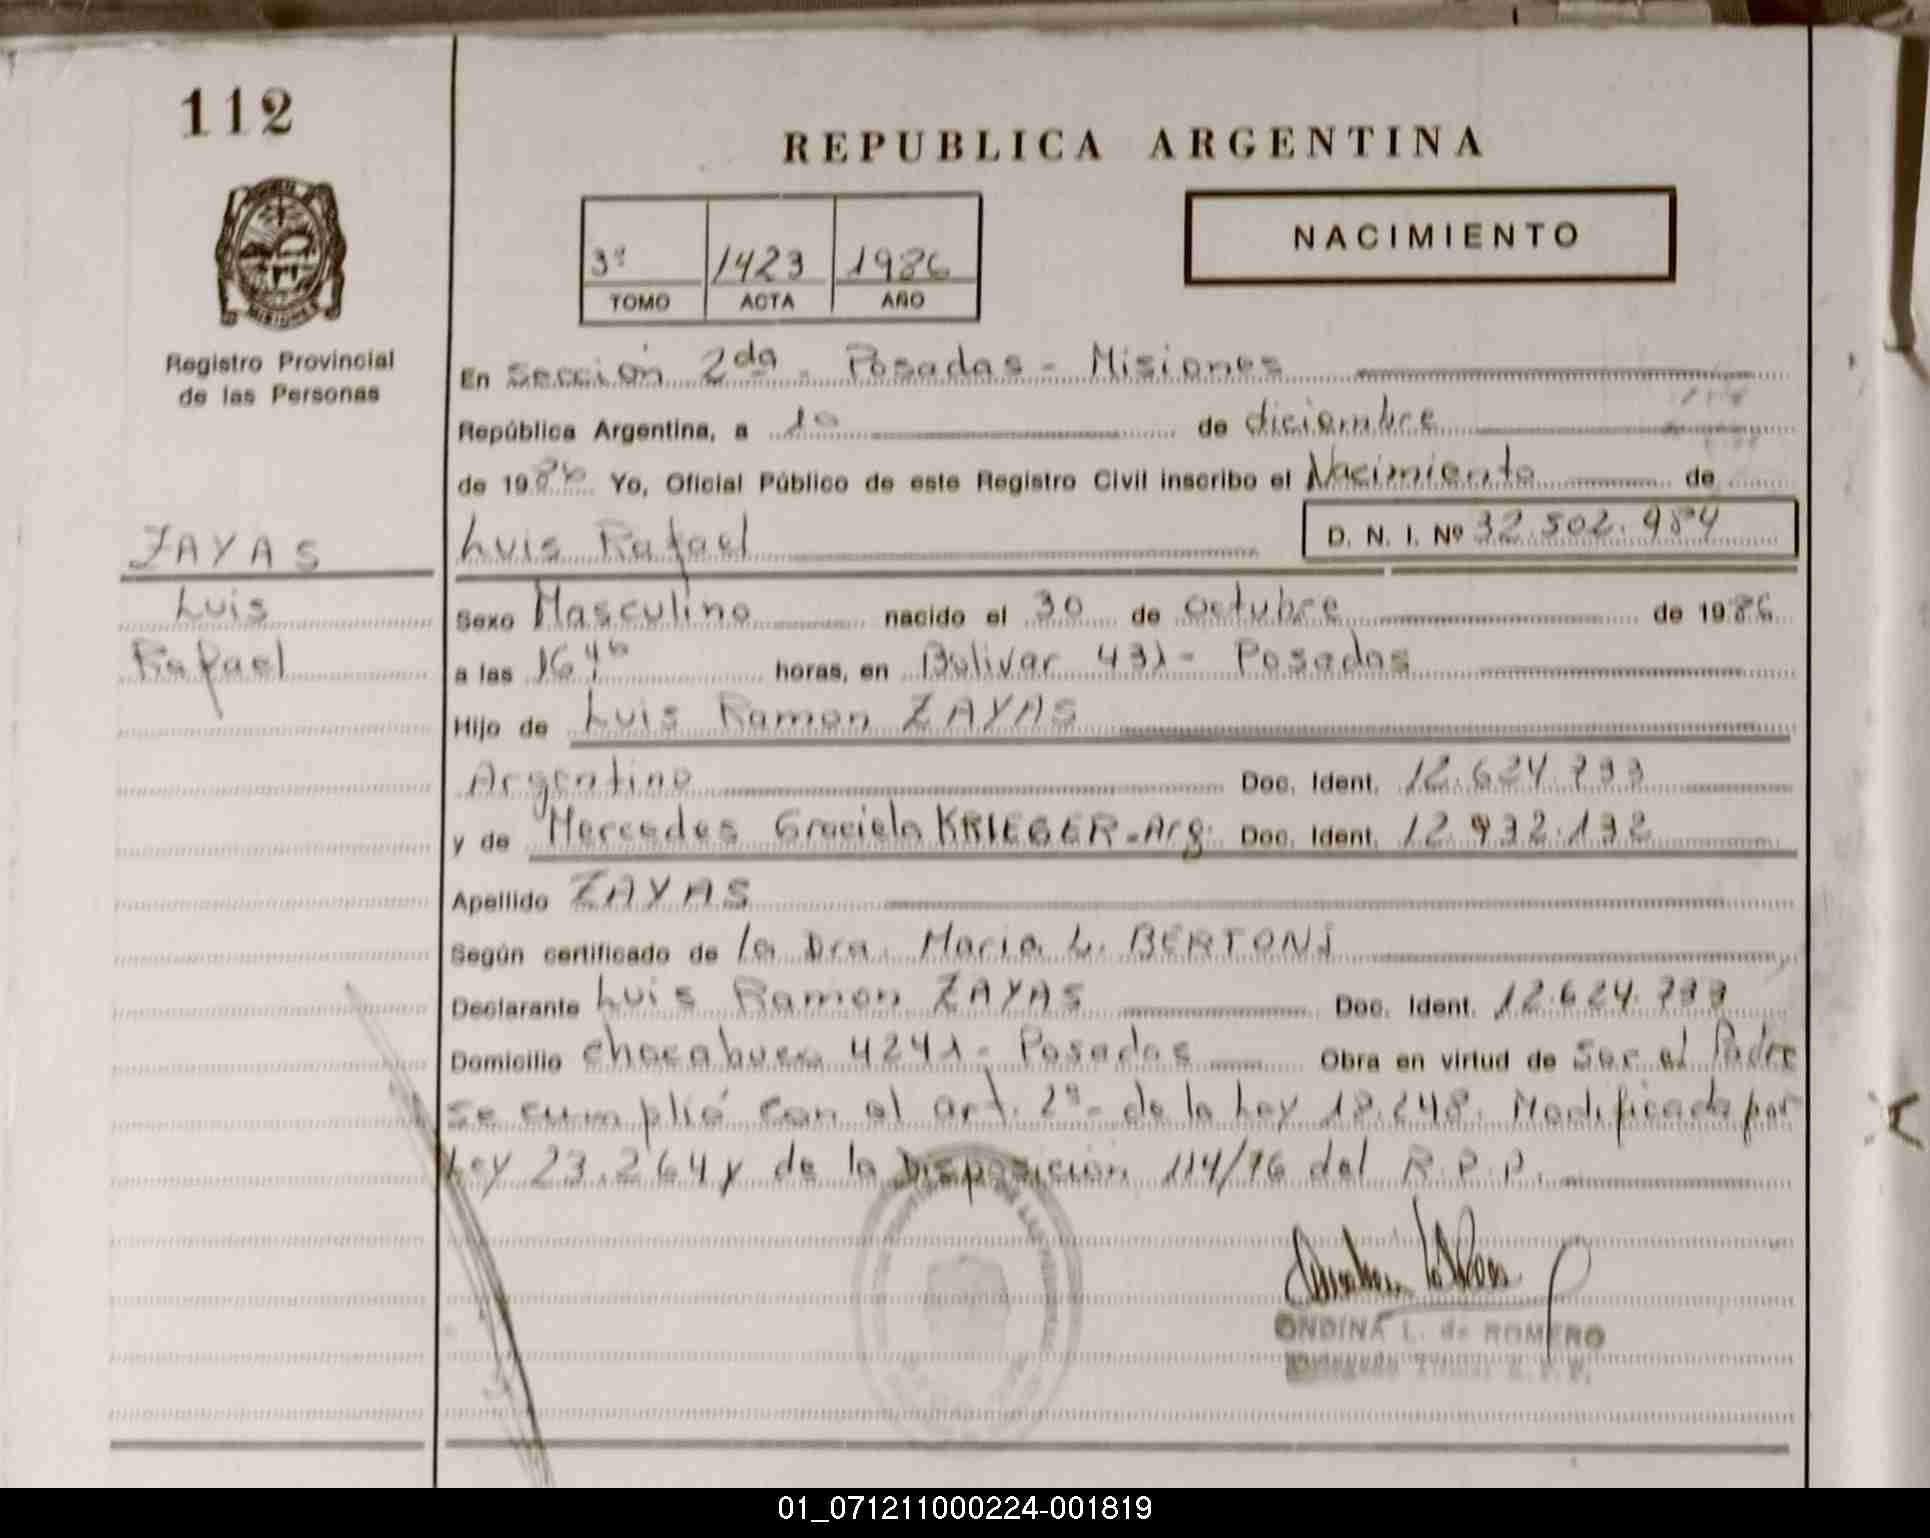 112
REPUBLICA ARGENTINA
NACIMIENTO
3º 1423 1986
TOMO ACTA AÑO
MISIONES
Registro Provincial
de las Personas
En Sección 2da - Posadas - Misiones
República Argentina, a 10 de diciembre
de 1986 Yo, Oficial Público de este Registro Civil inscribo el Nacimiento de
ZAYAS
Luis Rafael
D. N. I. Nº 32.502.984
Luis
Rafael
Sexo Masculino nacido el 30 de Octubre de 1986
a las 16 horas, en Bolivar 431 - Posadas
Hijo de Luis Ramon ZAYAS
Argentino Doc. Ident. 12.624.733
y de Mercedes Graciela KRIEGER - Arg. Doc. Ident. 12.932.132
Apellido ZAYAS
Según certificado de la Dra. Maria L. BERTONI
Declarante Luis Ramon ZAYAS Doc. Ident. 12.624.733
Domicilio Chacabuco 4241 - Posadas Obra en virtud de Ser el Padre
se cumplió con el art. 2º - de la Ley 18.248. Modificada por
Ley 23.264 y de la Disposición 114/76 del R.P.P.
ONDINA L. de ROMERO
01_071211000224-001819